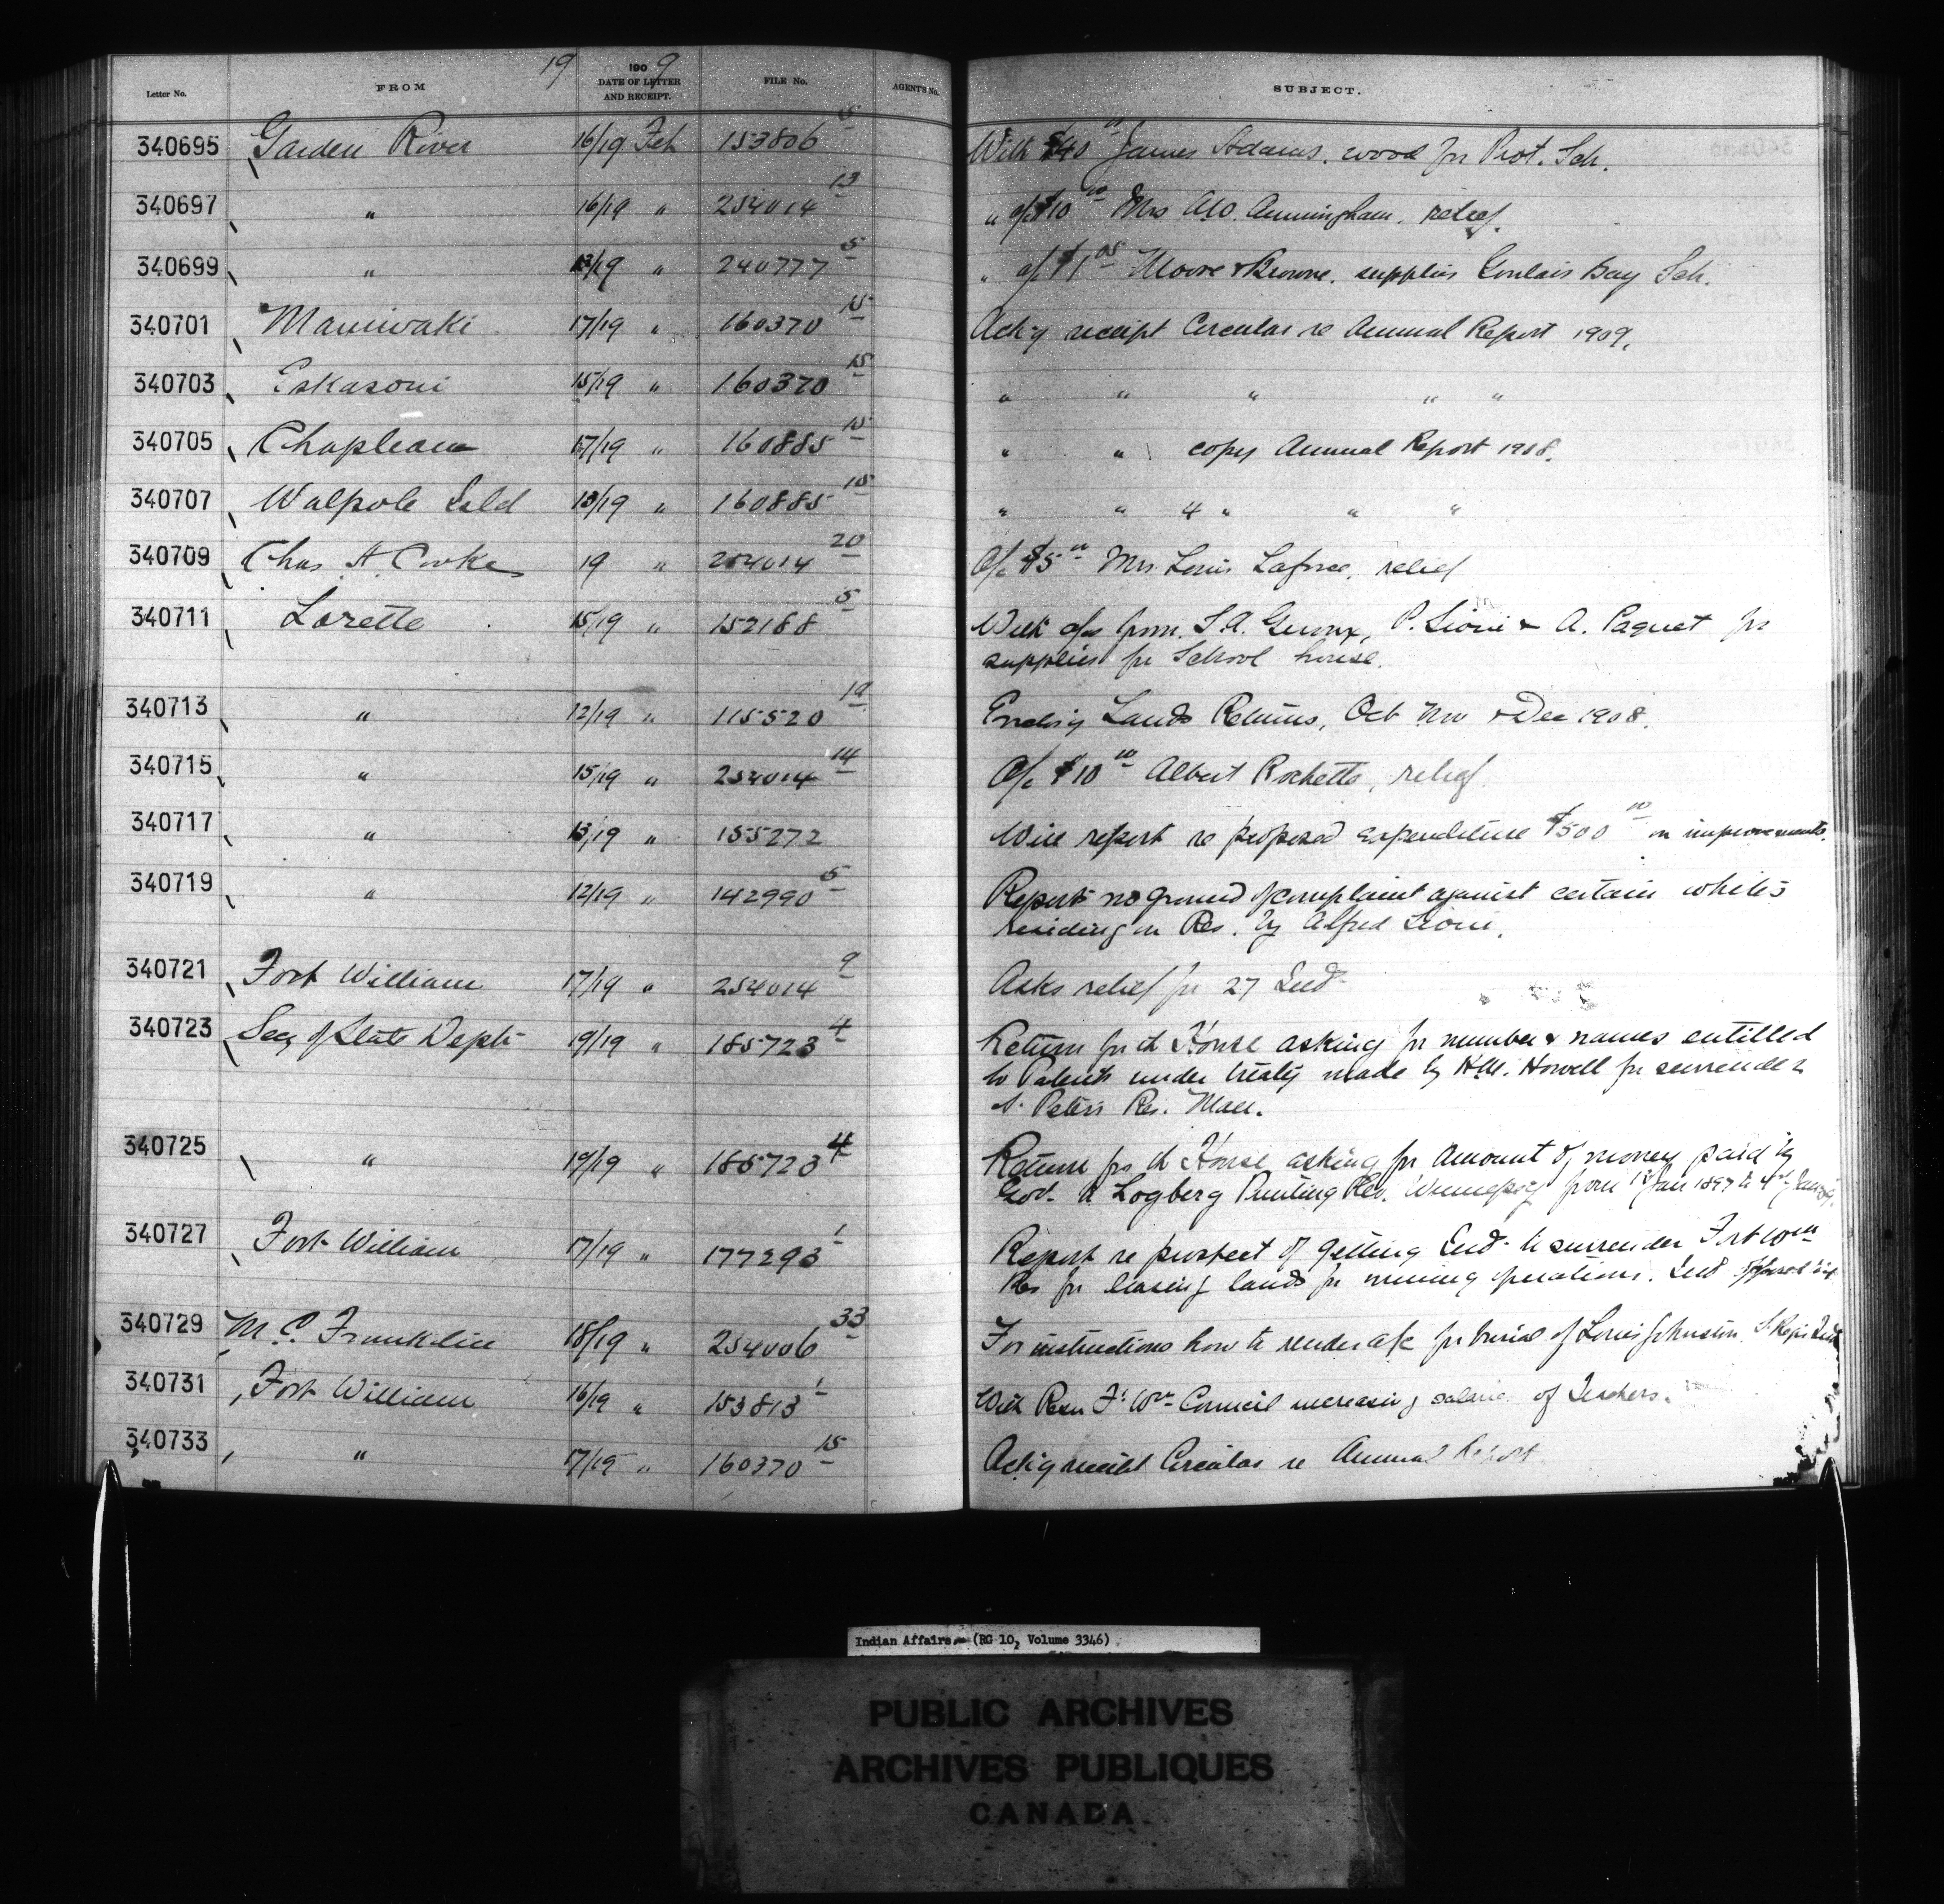 19
Letter No. FROM 1909 DATE OF LETTER AND RECEIPT. FILE No. AGENT'S No. SUBJECT.
340695 Garden River 16/19 Feb 153806 5 With $40 00 James Adams. wood for Prot. Sch.
340697 " 16/19 " 254014 13 " a/c $10 00 Mrs Cunningham, relief.
340699 " 13/19 " 240777 5 " a/c $1 05 Moore & Browne. supplies Goulais Bay Sch.
340701 Maniwaki 17/19 " 160370 15 Ack'g receipt Circular re Annual Report 1909.
340703 Eskasoni 15/19 " 160370 15 " " " " "
340705 Chapleau 17/19 " 160885 15 " " copy Annual Report 1908.
340707 Walpole Isld 13/19 " 160885 15 " " 4 " " "
340709 Chas. H. Cooke 19 " 254014 20 A/c $5 00 Mrs. Louis Laforce, relief
340711 Lorette 15/19 " 152188 5 With a/cs from. P. Sioui & A. Paquet for
supplies for School house.
340713 " 12/19 " 115520 Encl'g Lands Returns, Oct Nov & Dec 1908.
340715 " 15/19 " 254014 14 A/c $10 00 Albert Rochette, relief
340717 " 13/19 " 155272 Will report re proposed expenditure $500 00 on improvements.
340719 " 12/19 " 142990 5 Reports no ground of complaint against certain whites
residing on Res. by Alfred Sioui.
340721 Fort William 17/19 " 254014 9 Asks relief for 27 Inds
340723 Secy of State Dept 19/19 " 185723 4 Return for th House asking for number & names entitled
to Patents under treaty made by H.M. Howell for surrender
St. Peters Res. Man.
340725 " 19/19 " 185723 4 Return for th House asking for Amount of money paid by
Gov. to Logberg Printing Winnipeg from 1st Jan 1897 to
340727 Fort William 17/19 " 177293 1 Report re prospect of getting Inds to surrender Fort Wm
Res for leasing lands for mining operations. Inds opposed
340729 M. C. Franklin 18/19 " 254006 33 For instructions how to render a/c for burial of Louis Johnston, St. Regis
340731 Fort William 16/19 " 153813 1 With Resn Ft. Wm Council increasing salaries of Teachers.
340733 " 17/19 " 160370 15 Ack'g receipt Circular re Annual Report
Indian Affairs. (RG 10, Volume 3346)
PUBLIC ARCHIVES
ARCHIVES PUBLIQUES
CANADA